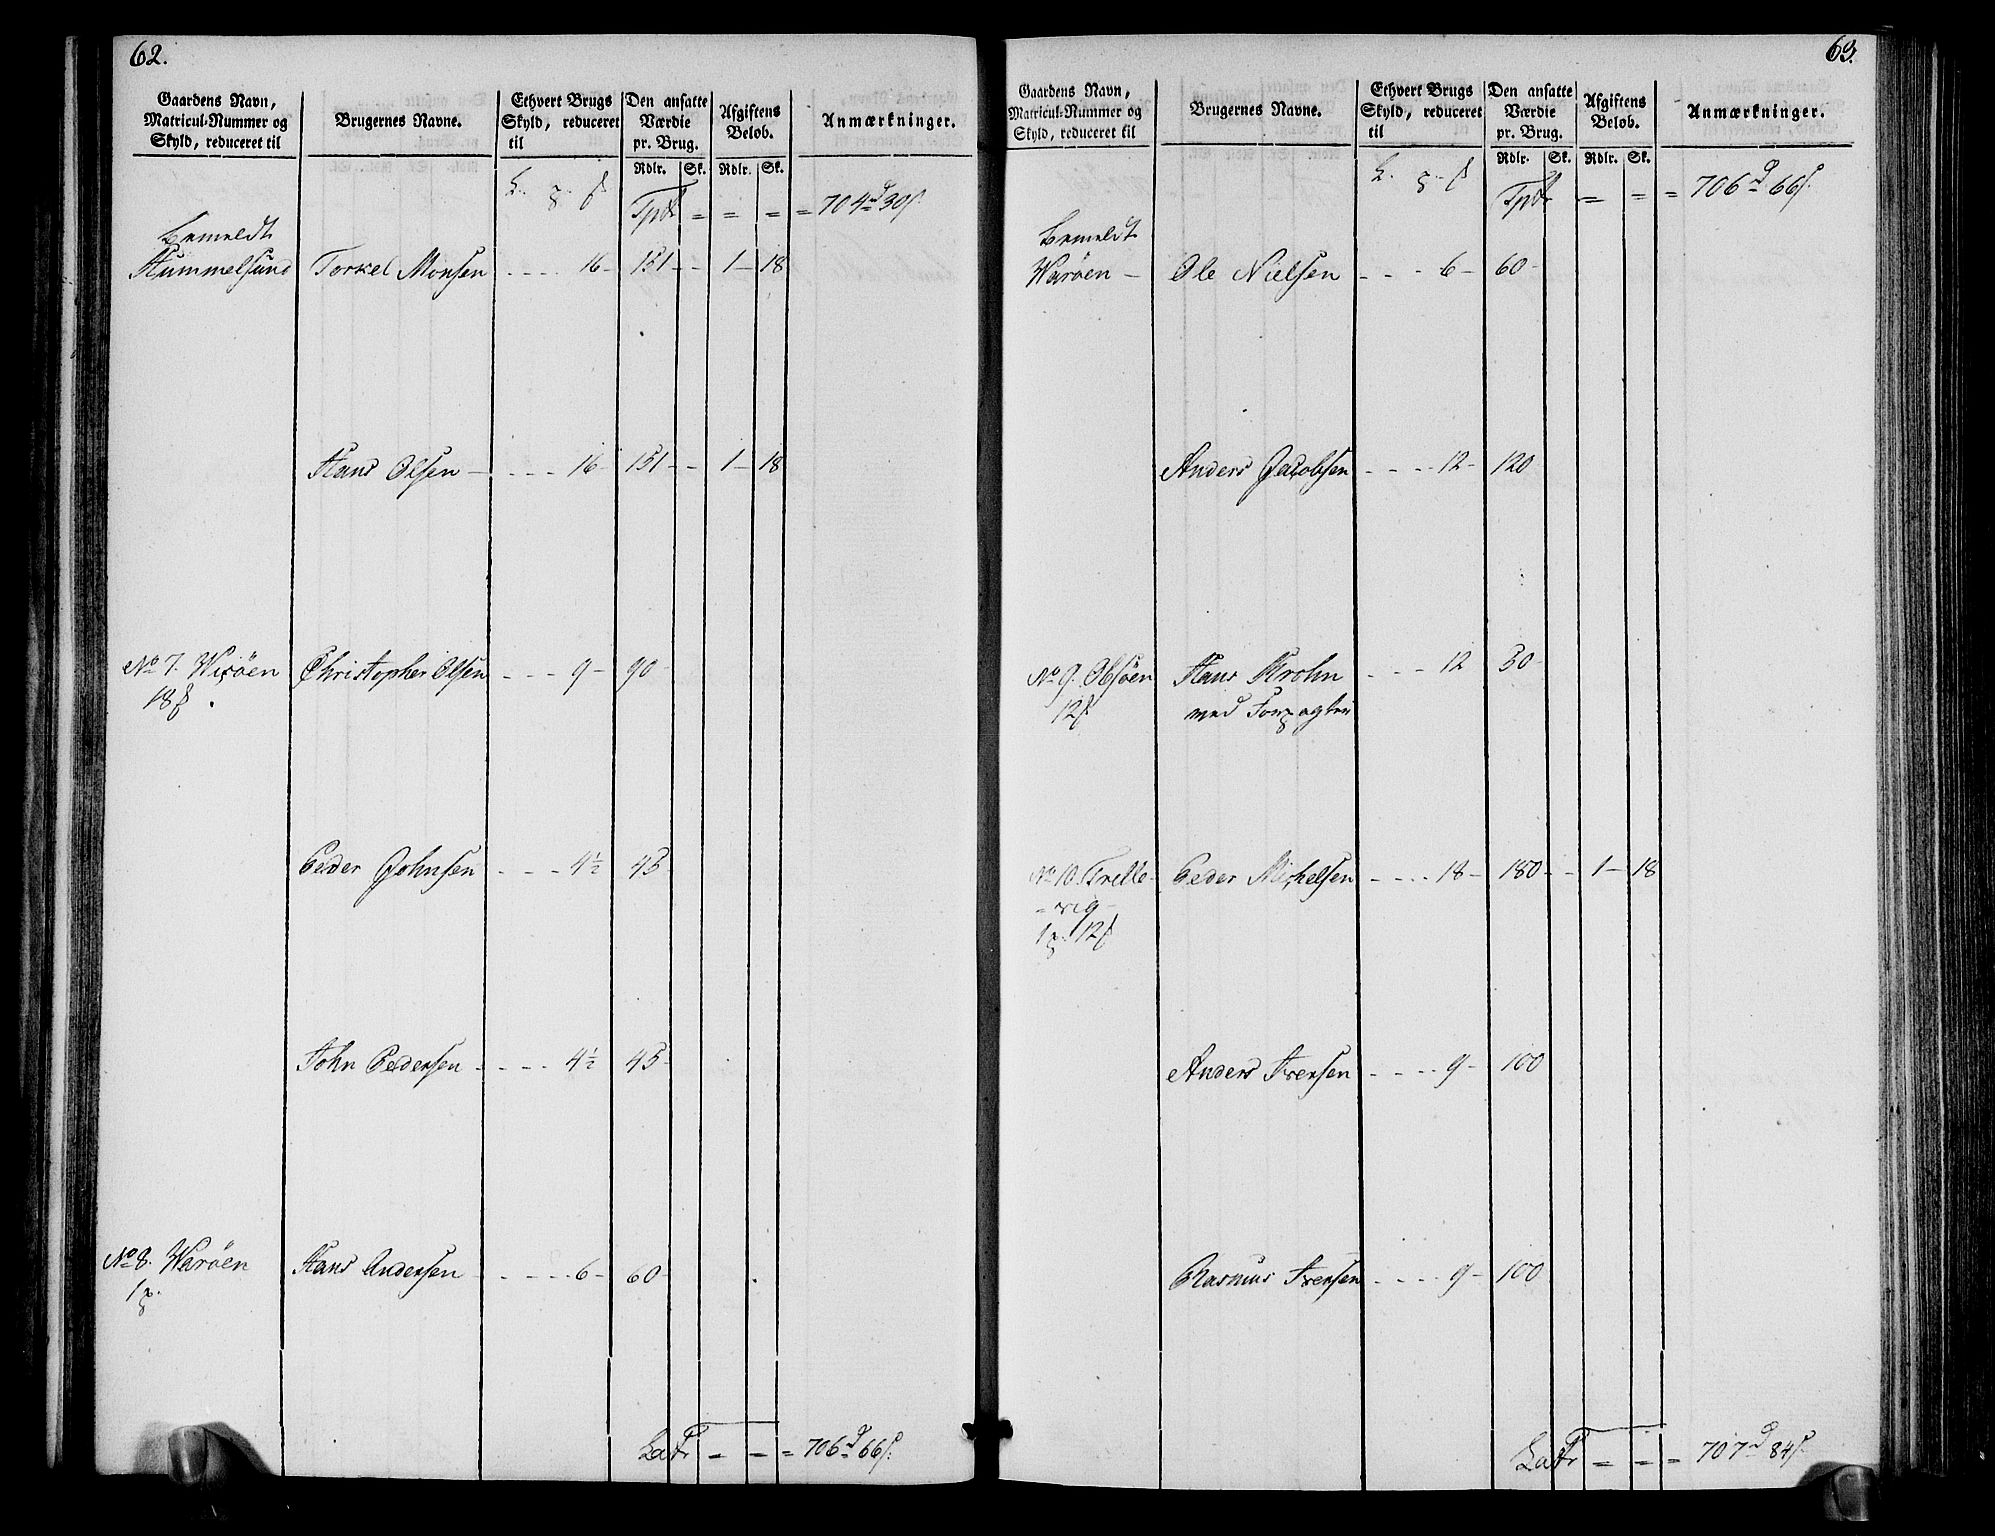 62.
Gaardens Navn, Matricul-Nummer og Skyld, reduceret til | Brugernes Navne. | Ethvert Brugs Skyld, reduceret til | Den ansatte Værdie pr. Brug. | Afgiftens Beløb. | Anmærkninger.
Rdlr. Sk. Rdlr. Sk.
Tpt = = = = 704 d 30 s.
bemeldt
Hummelsund Torkel Monsen - - - - 16 - 151 - - 1 - 18
Hans Olsen - - - - 16 - 151 - - 1 - 18
No 7. Wisöen Christopher Olsen - - - 9 - 90 -
18
Peder Johnsen - - - - 4½ 45
John Pedersen - - - - 4½ 45 -
No 8. Waröen Hans Andersen - - - - - 6 - 60 -
1
Latr = = = 706 d 66 s.
63.
Gaardens Navn, Matricul-Nummer og Skyld, reduceret til | Brugernes Navne. | Ethvert Brugs Skyld, reduceret til | Den ansatte Værdie pr. Brug. | Afgiftens Beløb. | Anmærkninger.
Rdlr. Sk. Rdlr. Sk.
Tptr = = = 706 d 66 s.
bemeldt
Waröen - Ole Nielsen - - - 6 - 60 -
Anders Jacobsen - - - - 12 - 120
No 9. Obsöen Hans Krohn - - - 12 30 -
12 med Forpagter
No 10. Trelle- Peder Mickelsen - - - - 18 - 180 - - 1 - 18
= vig -
1 12
Anders Iversen - - - - 9 - 100
Rasmus Iversen - - - - 9 - 100
Latr = = = 707 d 84 s.